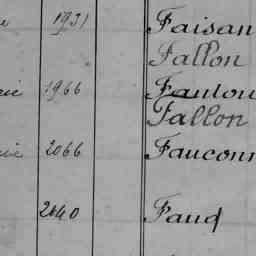 1931 Faisan
Fallon
1966 Fanton
Fallon
2066 Fauconn
2040 Faug